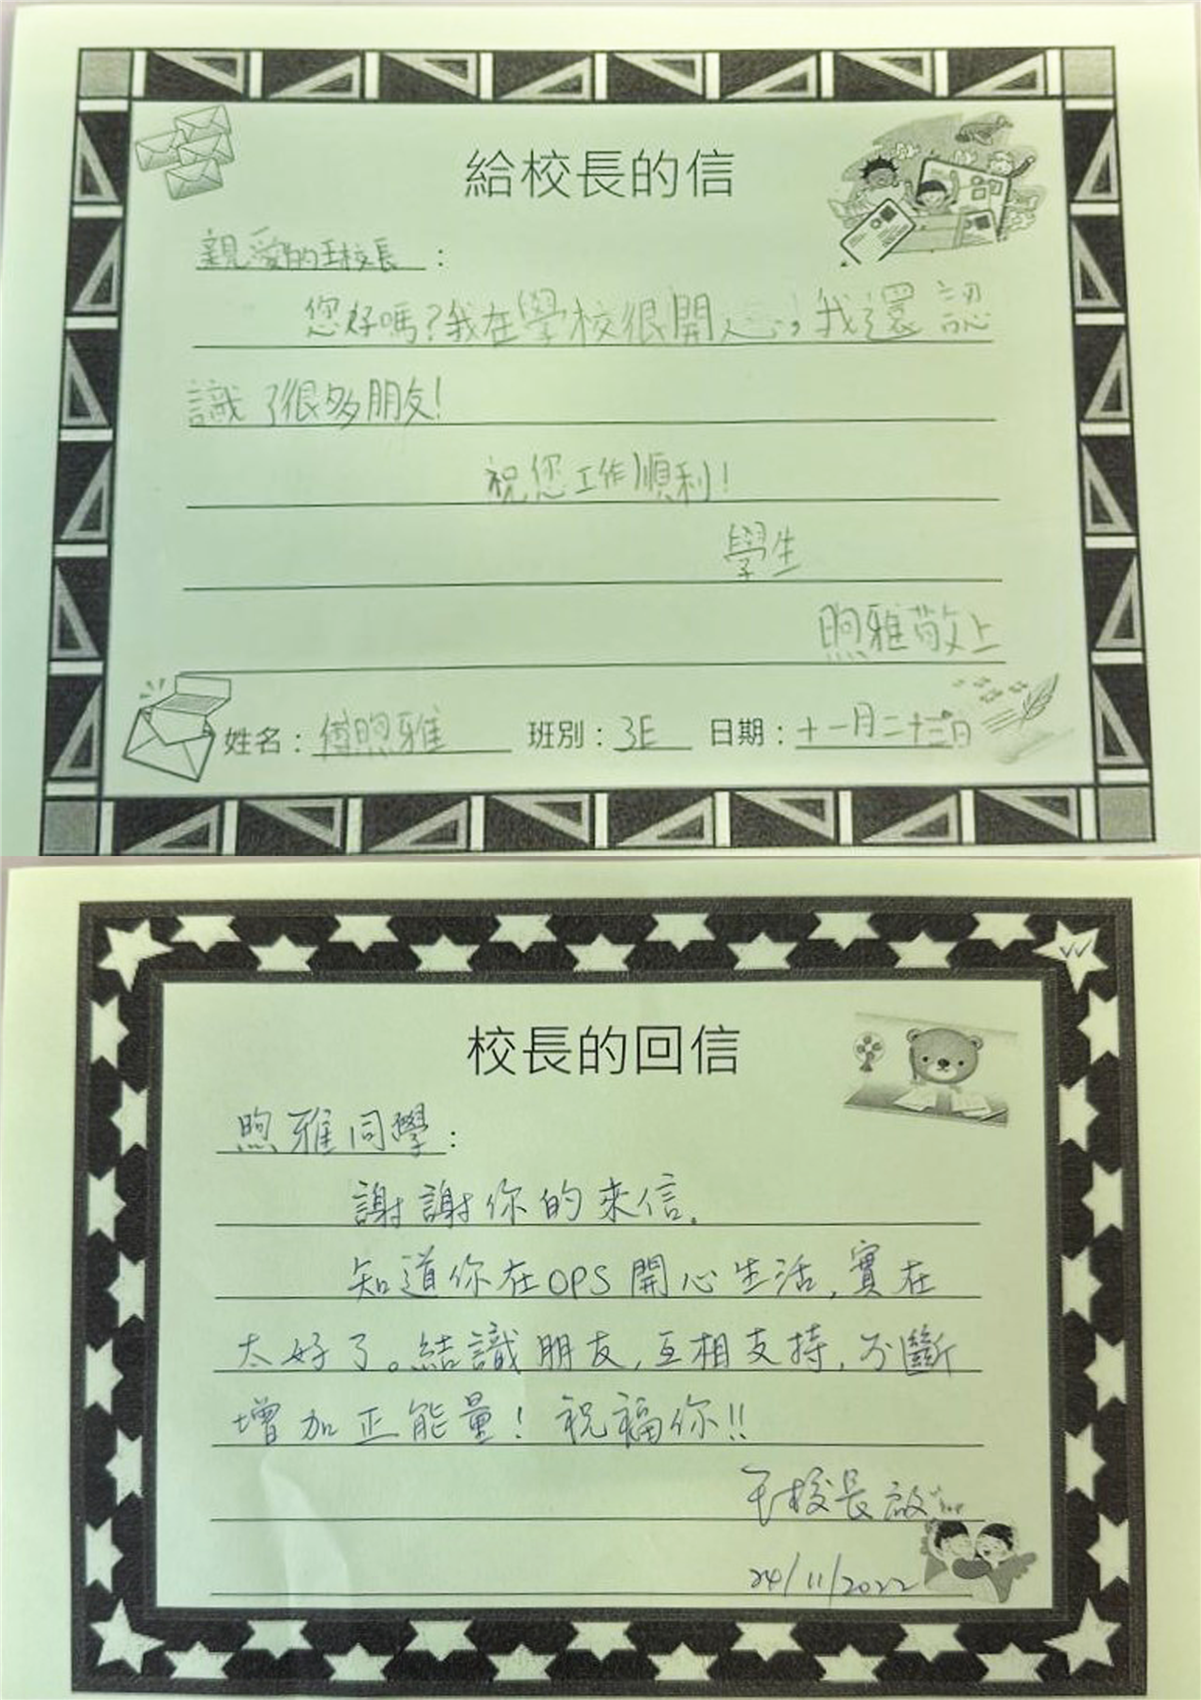 給校長的信
親愛的王校長：
您好嗎？我在學校很開心，我還認
識了很多朋友！
祝您工作順利！
學生
煦雅敬上
姓名：傅煦雅 班別：3E 日期：十一月二十三日
校長的回信
煦雅同學：
謝謝你的來信.
知道你在OPS開心生活,實在
太好了。結識朋友,互相支持,不斷
增加正能量！祝福你!!
王校長啟
24/11/2022